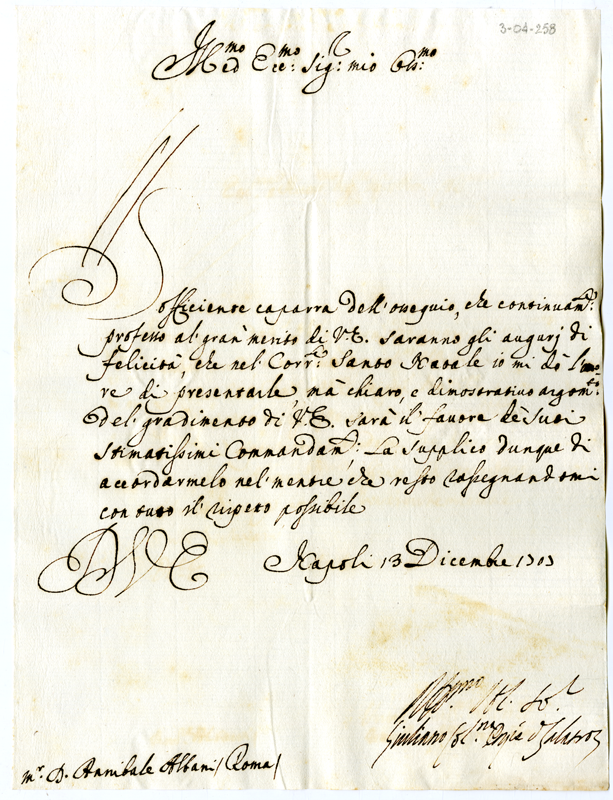 3-04-258
Ill.mo ed Ecc.mo Sig.r mio Oss.mo
Sofficiente caparra dell'ossequio, che continuam.te
professo al gran merito di V.E. saranno gli augurj di
felicità, che nel Corr.te Santo Natale io mi dò l'ono-
re di presentarle, mà chiaro, e dimostrativo argom.to
del gradimento di V.E. sarà il favore de suoi
stimatissimi Commandam.ti: La supplico dunque di
accordarmelo nel mentre che resto rassegnandomi
con tutto il rispetto possibile
D V E Napoli 13 Dicembre 1703
Giuliano
Mr. D. Annibale Albani / Roma /